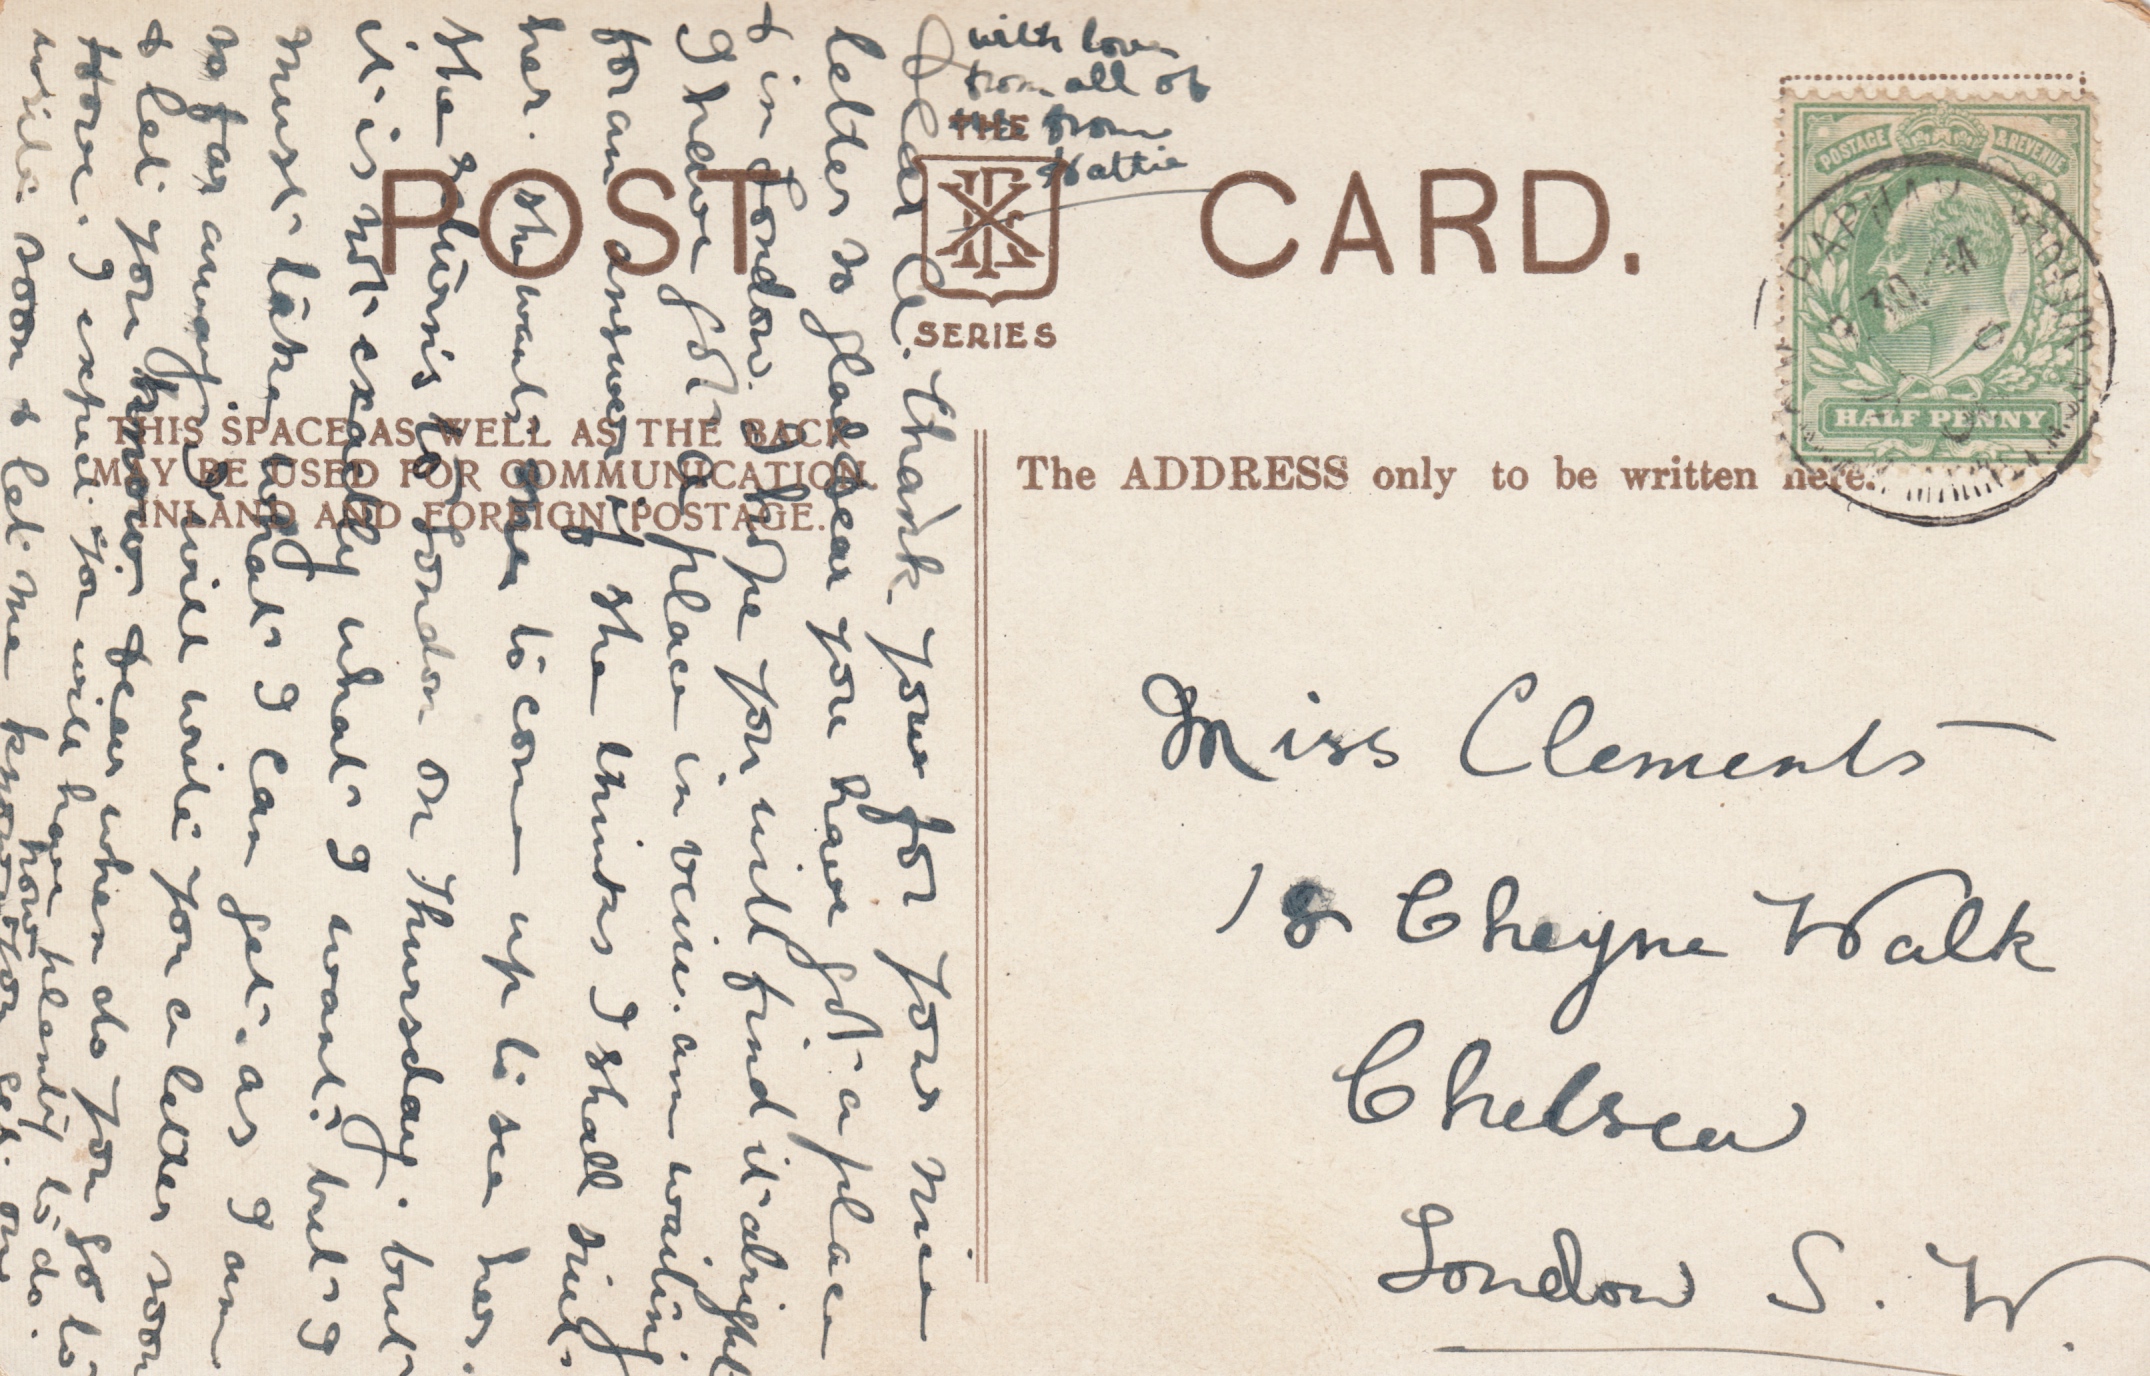 POST CARD.
THE
SERIES
THIS SPACE AS WELL AS THE BACK
MAY BE USED FOR COMMUNICATION
INLAND AND FOREIGN POSTAGE.
The ADDRESS only to be written here.
POSTAGE & REVENUE
HALF PENNY
Miss Clements
18 Cheyne Walk
Chelsea
London S. W.
Dear C. Thank you for your nice
letter so glad dear you have got a place
& in London. I hope you will find it alright
I have got a place in view. am waiting
for an answer if she thinks I shall suit
her. she wants me to come up to see her.
she returns to London on Thursday. but
it is not exactly what I want. but I
must take what I can get. as I am
so far away. I will write you a letter soon
& let you know. dear when do you go to
I expect you will have plenty to do.
write soon & let me know how you get on
with love
from all of
from
Hattie